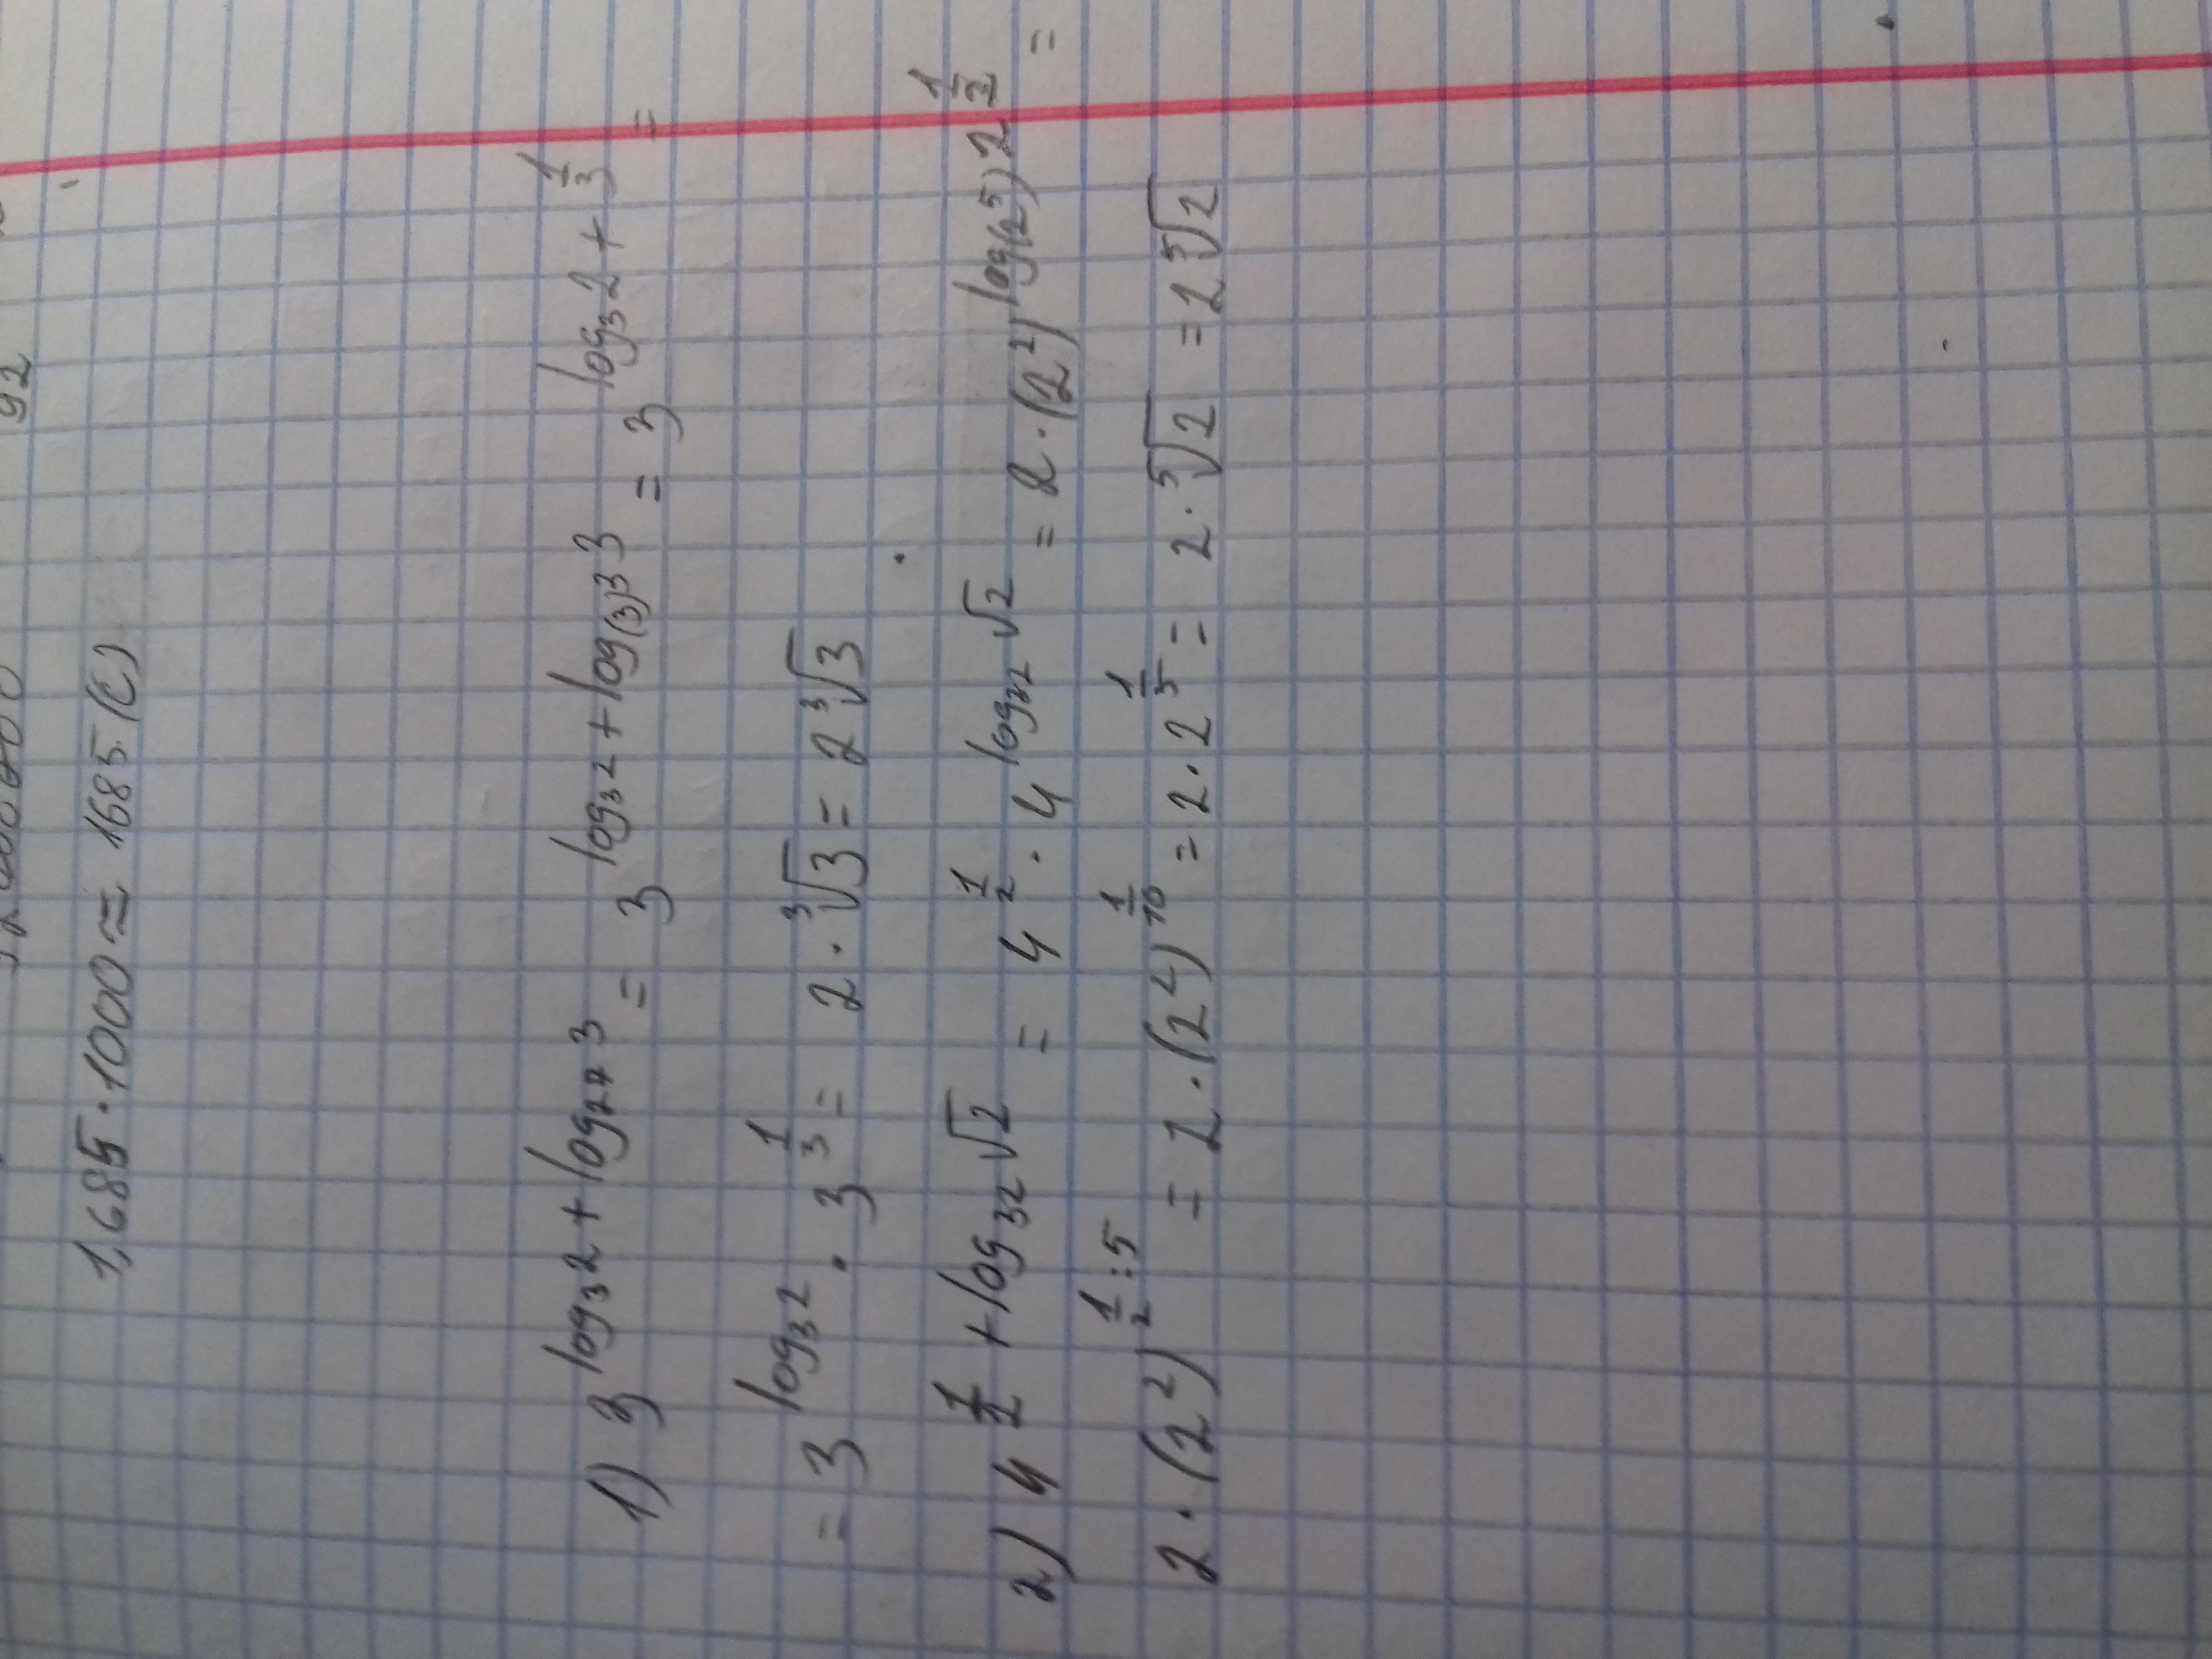 92
1,685·1000≈1685 (С)
1) 3^{log₃2+log₂₇3} = 3^{log₃2+log_{(3)^3}3} = 3^{log₃2+\frac{1}{3}} =
= 3^{log₃2} · 3^{\frac{1}{3}} = 2·∛3 = 2∛3
2) 4^{\frac{1}{2}+log₃₂√2} = 4^{\frac{1}{2}} · 4^{log₃₂√2} = 2·(2²)^{log_{(2^5)}2^{\frac{1}{2}}} =
2·(2²)^{\frac{1}{2}:5} = 2·(2²)^{\frac{1}{10}} = 2·2^{\frac{1}{5}} = 2·\sqrt[5]{2} = 2\sqrt[5]{2}